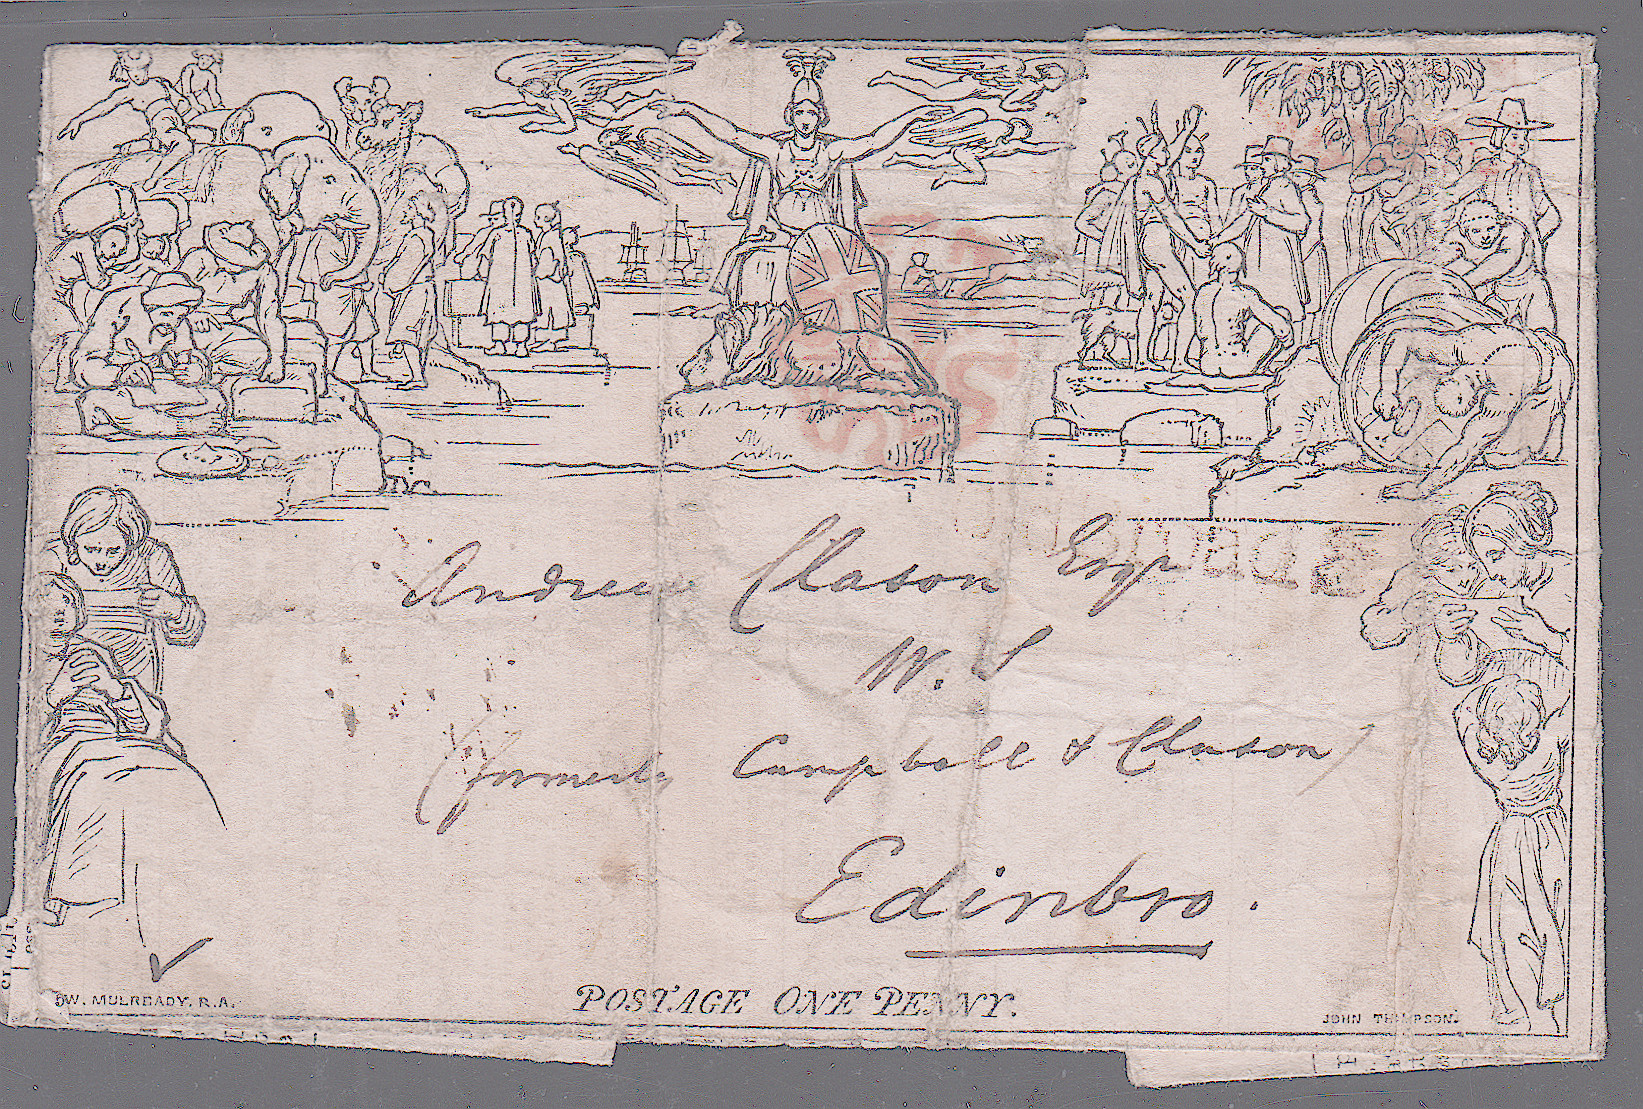 Andrew Clason Esqr
W. S
(formerly Campbell & Clason)
Edinbro.
W. MULREADY. R.A.
POSTAGE ONE PENNY.
JOHN THOMPSON.